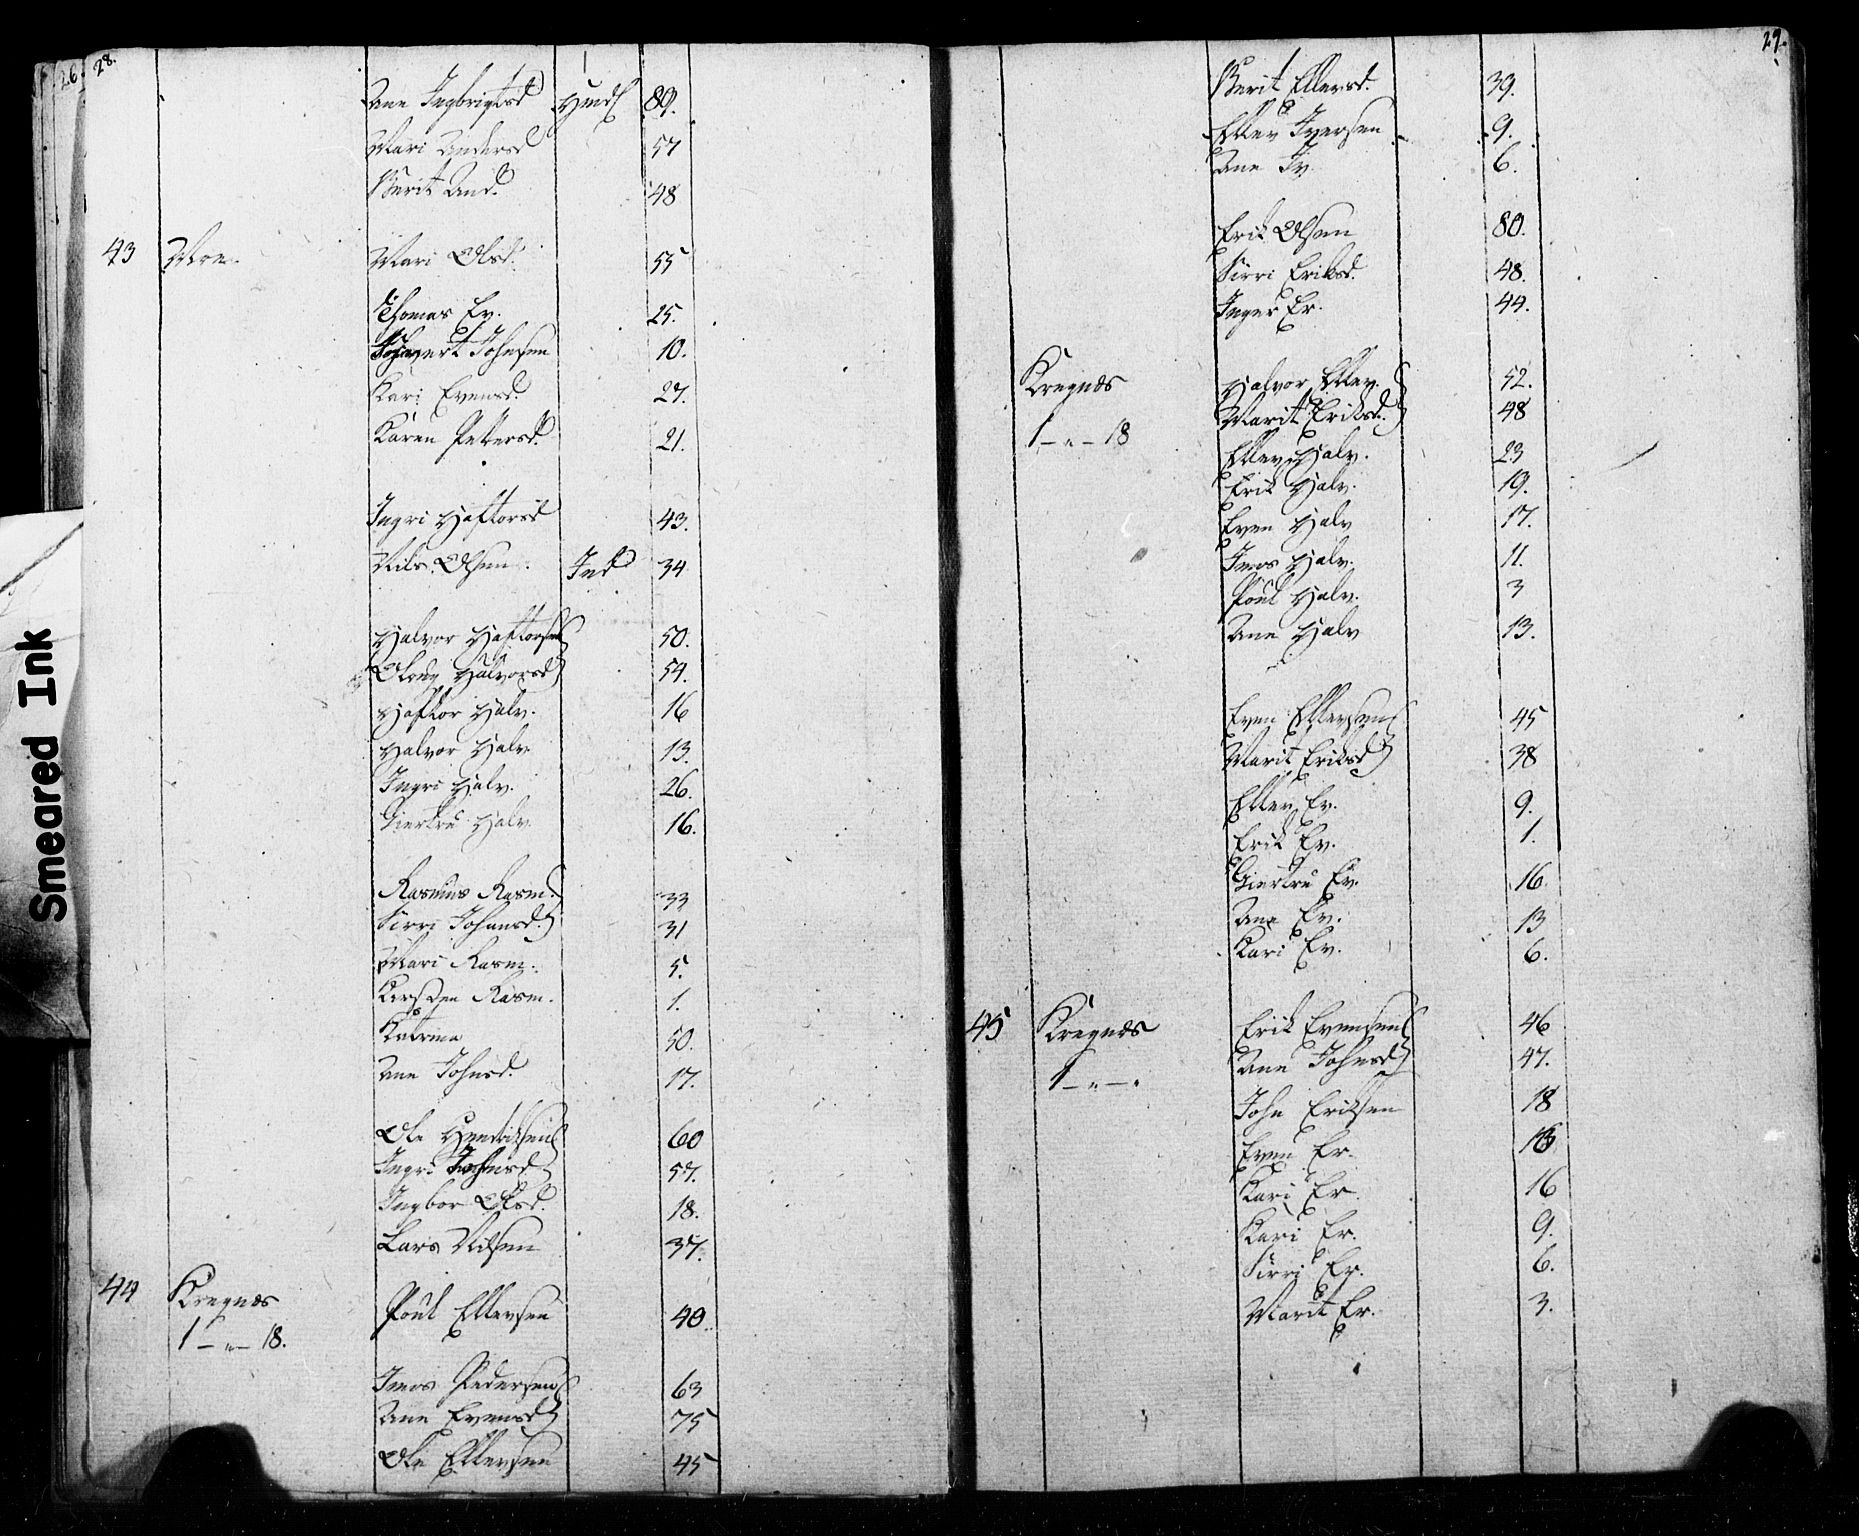 26. 28.
Ane Ingbrigtsd 89.
Mari Andersd 57
Berit And. 48
43 Moe. Mari Olsd. 55
Thomas Ev. 25.
Johnsen 10.
Kari Evensd. 27.
Karen Pettersd. 21.
Ingri Haftorsd 43.
Nils Olsen Ind 34
Halvor Haftorsen 50.
Oloug Halvorsd 54.
Haftor Halv. 16
Halvor Halv. 13.
Ingri Halv. 26.
Giertru Halv. 16.
Rasmus Rasm. 33
Sirri Johnsd. 31
Mari Rasm. 5.
Kirsten Rasm. 1.
Katrina 50.
Ane Johnsd. 17.
Ole Hendriksen 60
Ingri Johnsd 57.
Ingbor Olsd. 18.
Lars Nilsen 37.
44 Kregnæs
1 – „ – 18. Poul Ellevsen 40.
Imos Pedersen 63
Ane Evensd 75
Ole Ellevsen 45
Smeared Ink
29.
Berit Ellevsd. 39.
Ellev Iversen 9.
Ane Iv. 6.
Erik Olsen 80.
Sirri Eriksd. 48.
Inger Er. 44.
Kregnæs Halvor Ellev. 52.
Marit Eriksd. 48
1 – „ – 18 Ellev Halv. 23
Erik Halv. 19.
Even Halv 17.
Imos Halv. 11.
Poul Halv. 3
Ane Halv 13.
Even Ellevsen 45
Marit Eriksd 38
Ellev Ev. 9.
Erik Ev. 1.
Giertru Ev. 16.
Ane Ev. 13
Kari Ev. 6.
45 Kregnæs Erik Evensen 46
1 – „ – „ Ane Johnsd 47.
John Eriksen 18
Even Er.
Kari Er. 16
Kari Er. 9.
Sirri Er. 6.
Marit Er. 3.